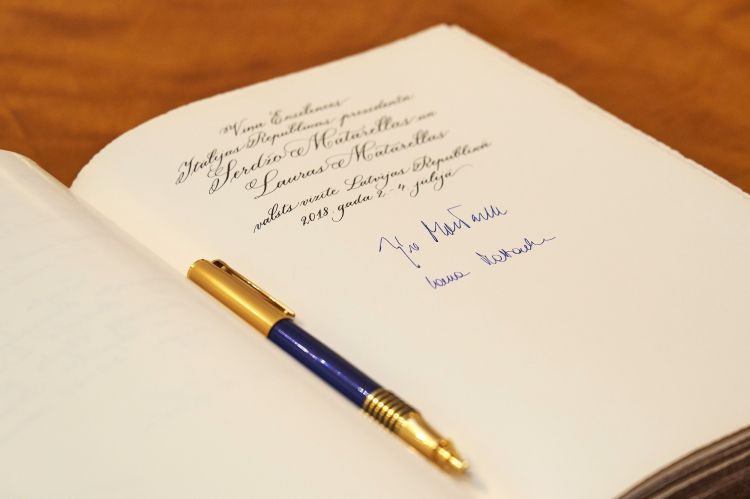 Viņa Ekselences
Itālijas Republikas prezidenta
Serdžo Matarellas un
Lauras Matarellas
valsts vizīte Latvijas Republikā
2018. gada 2.-4. jūlijā